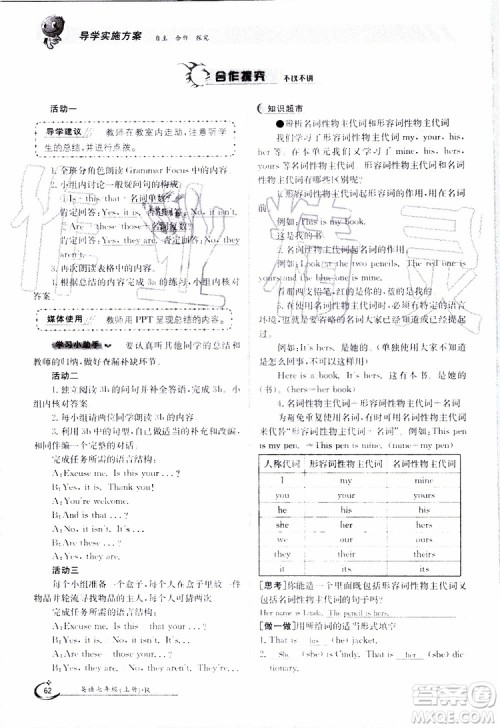 导学实施方案 自主 合作 探究
合作探究 不议不讲
活动一
导学建议 教师在教室内走动,注意听学
生的总结,并进行点拨。
1. 全班分角色朗读 Grammar Focus 中的内容。
2. 小组内探讨一般疑问句的构成:
Is this/that + 名词单数?
肯定回答:Yes, it is. 否定回答:No, it isn't.
Are these/those + 名词复数?
肯定回答:Yes, they are. 否定回答:No, they
aren't.
3. 再次朗读表格中的内容。
4. 根据总结的内容完成 3a 的练习,小组内核对
答案。
媒体使用 教师用 PPT 呈现总结的内容。
学习小助手 要认真听其他同学的总结和
教师的归纳,及时查漏补缺环节。
活动二
1. 独立阅读 3b 的问句并补全答语,完成后,小
组内核对答案。
2. 每组请两位同学朗读完成后的对话。
3. 利用 3b 中的句型,小组内模仿练习,每个小
组完成一个完整的对话。
完成任务所需的语言结构:
A:Excuse me. Is this your ...?
B:Yes, it is. Thank you.
A:And is that ...?
B:No, it isn't.
A:And are these your ...?
A:Yes, they are.
活动三
每个小组准备一个盒子,每人往里面放一件
物品,并寻找物品的主人,其他同学进行回答。
完成任务所需的语言结构:
A:Excuse me. Is this your ...?
B:Yes, it is. / No, it isn't.
A:Are these your ...?
B:Yes, they are. / No, they aren't.
62 英语七年级(上册)·R
知识超市
辨析名词性物主代词和形容词性物主代词
我们学习了形容词性物主代词 my, your, his,
her 等。在本单元我们又见到了 mine, his, hers,
yours 等名词性物主代词。它们和形容词性物主代
词有哪些区别呢?
1. 形容词性物主代词起形容词的作用,后接
名词。
例如:This is my book.
这是我的书。
2. 名词性物主代词起名词的作用。
例如:Look at the two pencils. The red one is
yours and the blue one is mine.
看那两支铅笔,红的是你的,蓝的是我的。
注意:在使用名词性物主代词时,必须有特定的语言
环境,也就是要省略的名词大家已经知道,已经
提起过。
例如:It's hers. 是她的。(单独使用大家不知
是怎么回事,不可以这样用)
There is a book. It's hers. 有本书。是她
的。(hers=her book)
3. 名词性物主代词相当于:形容词性物主代词
+名词。为避免重复使用名词,有时可以用名词性物
主代词来代替“形容词性物主代词+名词”的形式。
例如:This pen is mine. (mine=my pen) This pen
is my pen.
人称代词 形容词性物主代词 名词性物主代词
I my mine
you your yours
he his his
she her hers
they their theirs
it its its
[思考]你能造一个里面既有形容词性物主代词又
有名词性物主代词的句子吗?
Her name is Linda. The pencil is hers.
[做一做]用所给词的适当形式填空。
1. That is his (he) jacket.
2. She (she) is a student. These are her (she)
dictionaries.